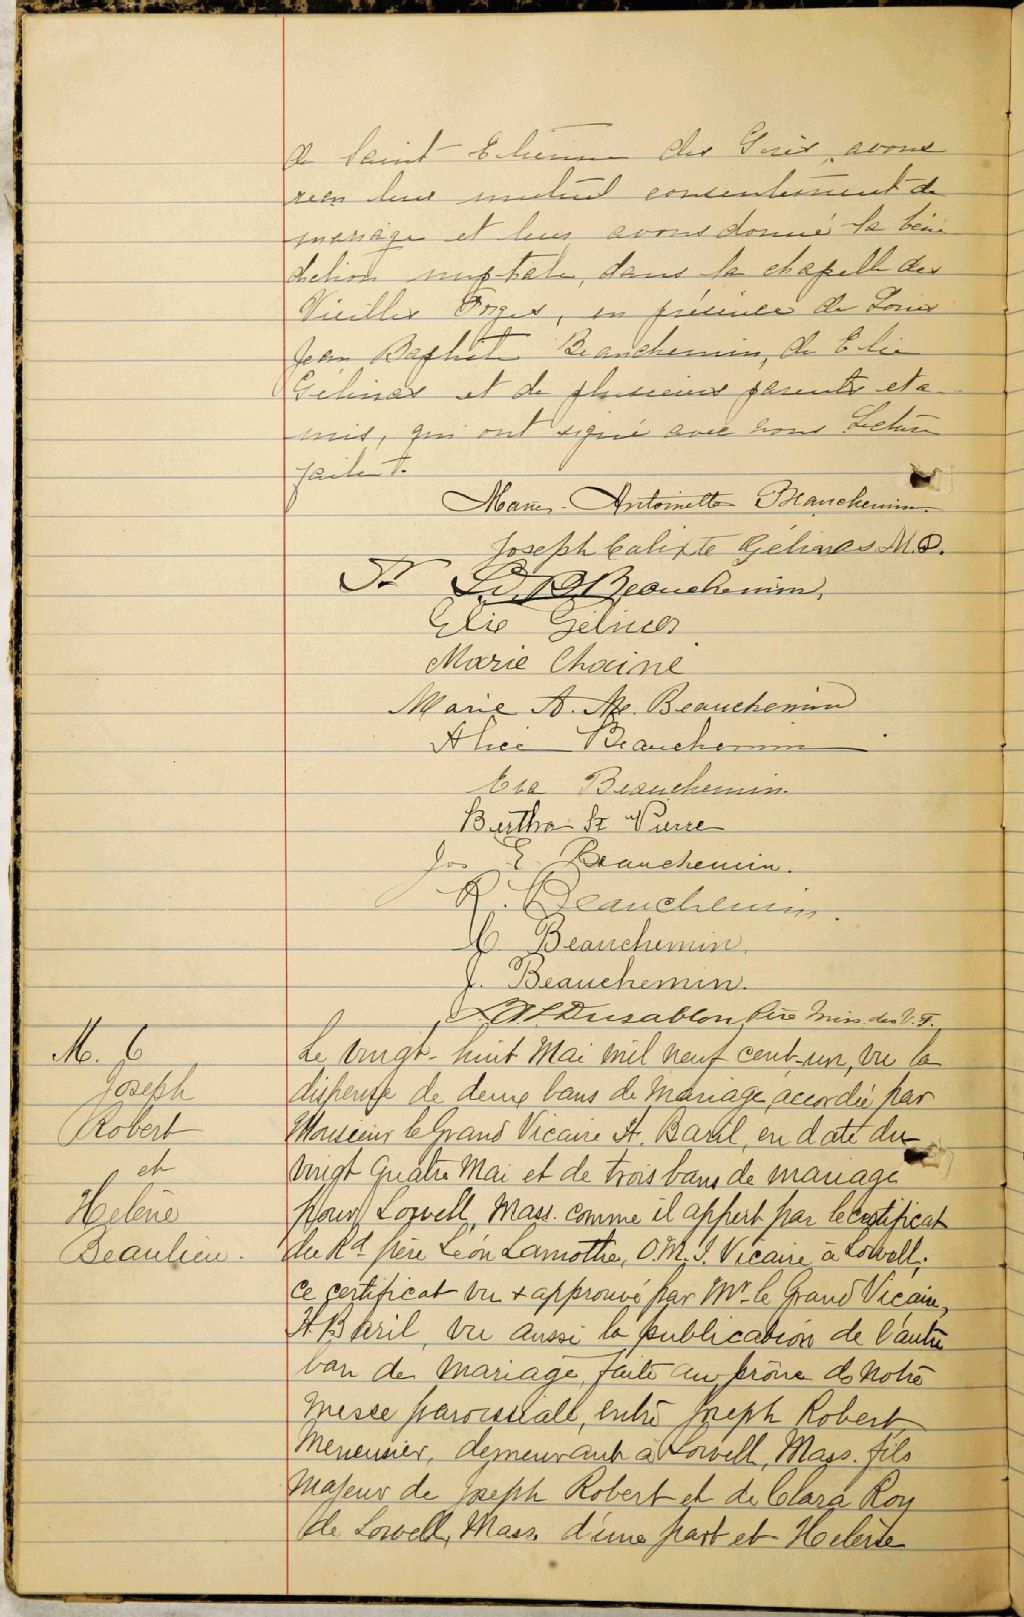 de Saint Etienne des Grès, avons
reçu leur mutuel consentement de
mariage et leur avons donné la béné
diction nuptiale, dans la chapelle des
Vieilles Forges, en présence de Louis
Jean Baptiste Beauchemin, de Elie
Gélinas et de plusieurs parents et a-
mis, qui ont signé avec nous Lecture
faite.
Marie-Antoinette Beauchemin.
Joseph Calixte Gélinas M.D.
L. J. B. Beauchemin,
Elie Gélinas
Marie Chainé
Marie A. Me. Beauchemin
Alice Beauchemin
Eva Beauchemin.
Bertha St Pierre
Jos E. Beauchemin.
R. Beauchemin.
C. Beauchemin.
J. Beauchemin.
Dusablon Ptre Miss. des V. F.
M. 6
Joseph
Robert
et
Helène
Beaulieu.
Le vingt-huit Mai mil neuf cent-un, vu la
dispense de deux bans de Mariage, accordée par
Monsieur le Grand Vicaire H. Baril, en date du
vingt quatre Mai et de trois bans de mariage
pour Lowell, Mass. comme il appert par le certificat
du Rd père Léon Lamothe, O.M.I. Vicaire à Lowell;
ce certificat vu & approuvé par Mr le Grand Vicaire,
H Baril, vu aussi la publication de l'autre
ban de Mariage, faite au prône de Notre
Messe paroissiale, entre Joseph Robert,
Menuisier, demeurant à Lowell, Mass. fils
Majeur de Joseph Robert et de Clara Roy
de Lowell, Mass. d'une part et Helène